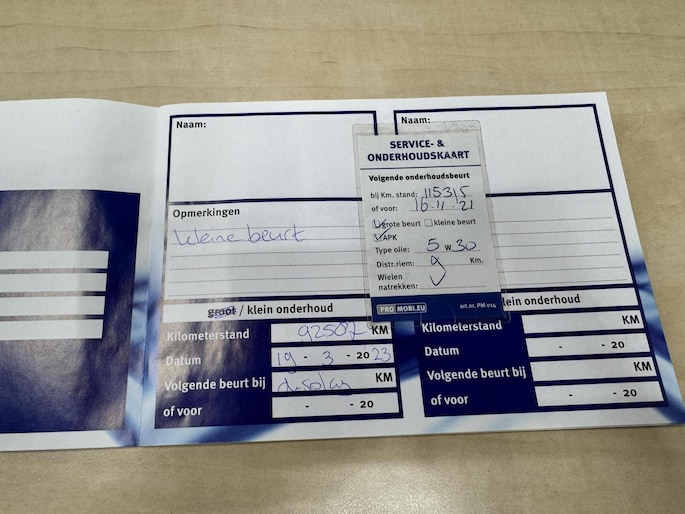 Naam:
Opmerkingen
kleine beurt
groot / klein onderhoud
Kilometerstand 92587 KM
Datum 19 - 3 - 2023
Volgende beurt bij display KM
of voor - - 20
SERVICE- &
ONDERHOUDSKAART
Volgende onderhoudsbeurt
bij Km. stand: 115315
of voor: 16-11-'21
grote beurt kleine beurt
APK
Type olie: 5 W 30
Distr.riem: Km.
Wielen
natrekken:
PRO MOBI.EU art.nr. PM 014
Naam:
/ klein onderhoud
Kilometerstand KM
Datum - - 20
Volgende beurt bij KM
of voor - - 20